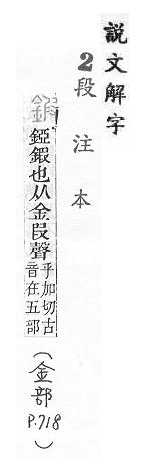 説文解字
2段注本
錏鍜也从金叚聲
乎加切古
音在五部
(金部 P.718)